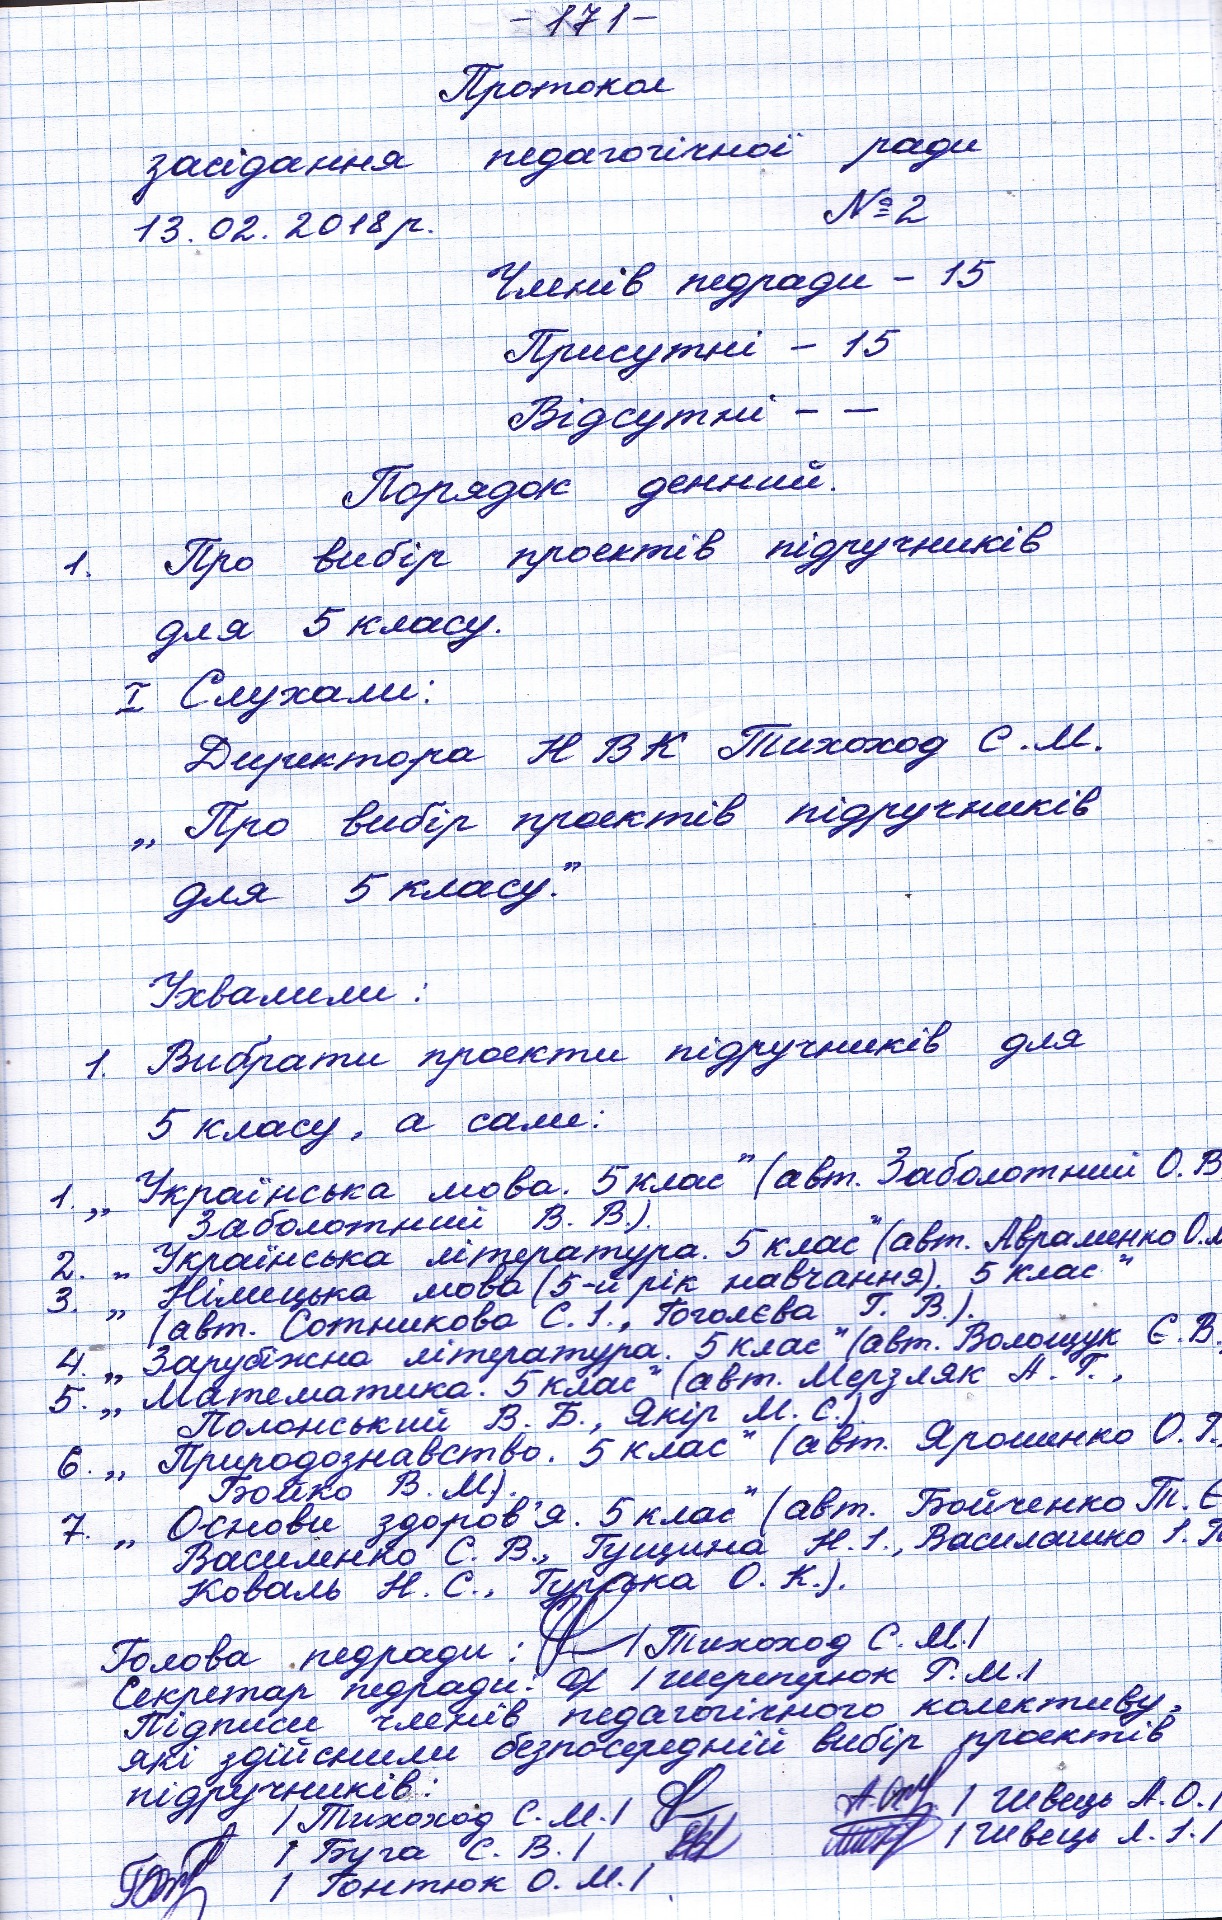 - 171 -
Протокол
засідання педагогічної ради
13.02.2018р. №2
Членів педради - 15
Присутні - 15
Відсутні - —
Порядок денний.
1. Про вибір проектів підручників
для 5 класу.
I Слухали:
Директора НВК Тихоход С.М.
„Про вибір проектів підручників
для 5 класу.”
Ухвалили:
1. Вибрати проекти підручників для
5 класу, а саме:
1. „Українська мова. 5 клас” (авт. Заболотний О.В
Заболотний В.В.).
2. „Українська література. 5 клас” (авт. Авраменко О.М
3. „Німецька мова (5-й рік навчання). 5 клас”
(авт. Сотникова С.І., Гоголєва Г.В.).
4. „Зарубіжна література. 5 клас” (авт. Волощук Є.В.
5. „Математика. 5 клас” (авт. Мерзляк А.Г.,
Полонський В.Б., Якір М.С.).
6. „Природознавство. 5 клас” (авт. Ярошенко О.Г.,
Бойко В.М).
7. „Основи здоров'я. 5 клас” (авт. Бойченко Т.Є
Василенко С.В., Гущина Н.І., Василашко І.П
Коваль Н.С., Гурська О.К.).
Голова педради: /Тихоход С.М./
Секретар педради: /Шереперюк Г.М./
Підписи членів педагогічного колективу,
які здійснили безпосередній вибір проектів
підручників:
/Тихоход С.М./ /Швець А.О./
/Буга С.В./ /Швець Л.І./
/Гонтюк О.М./